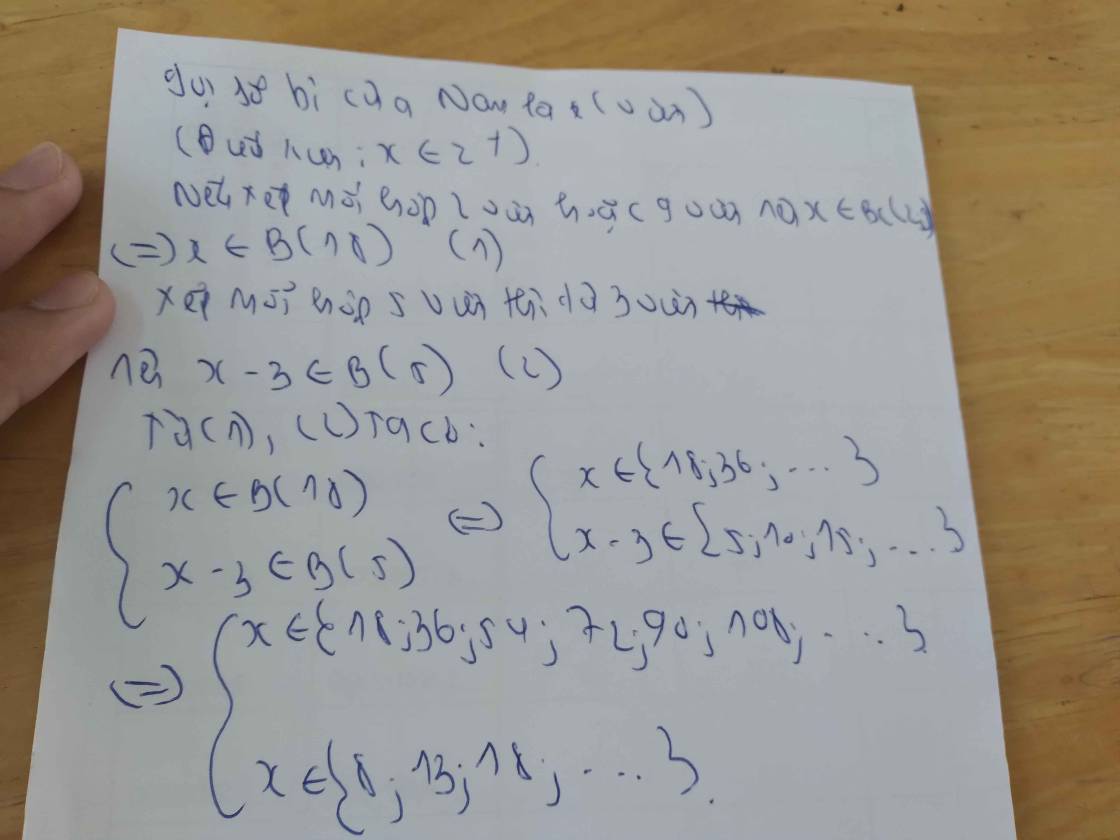 Gọi số bi của Nam là x (viên)
(Điều kiện: x ∈ Z+).
Nếu xếp mỗi hộp 2 viên hoặc 9 viên nên x ∈ BC(2,9)
(=) x ∈ B(18) (1)
xếp mỗi hộp 5 viên thì dư 3 viên
nên x - 3 ∈ B(5) (2)
Từ (1), (2) Ta có:
{ x ∈ B(18) (=) { x ∈ {18; 36; ...}
x - 3 ∈ B(5) x - 3 ∈ {5; 10; 15; ...}
(=) { x ∈ {18; 36; 54; 72; 90; 108; ...}
x ∈ {8; 13; 18; ...}.